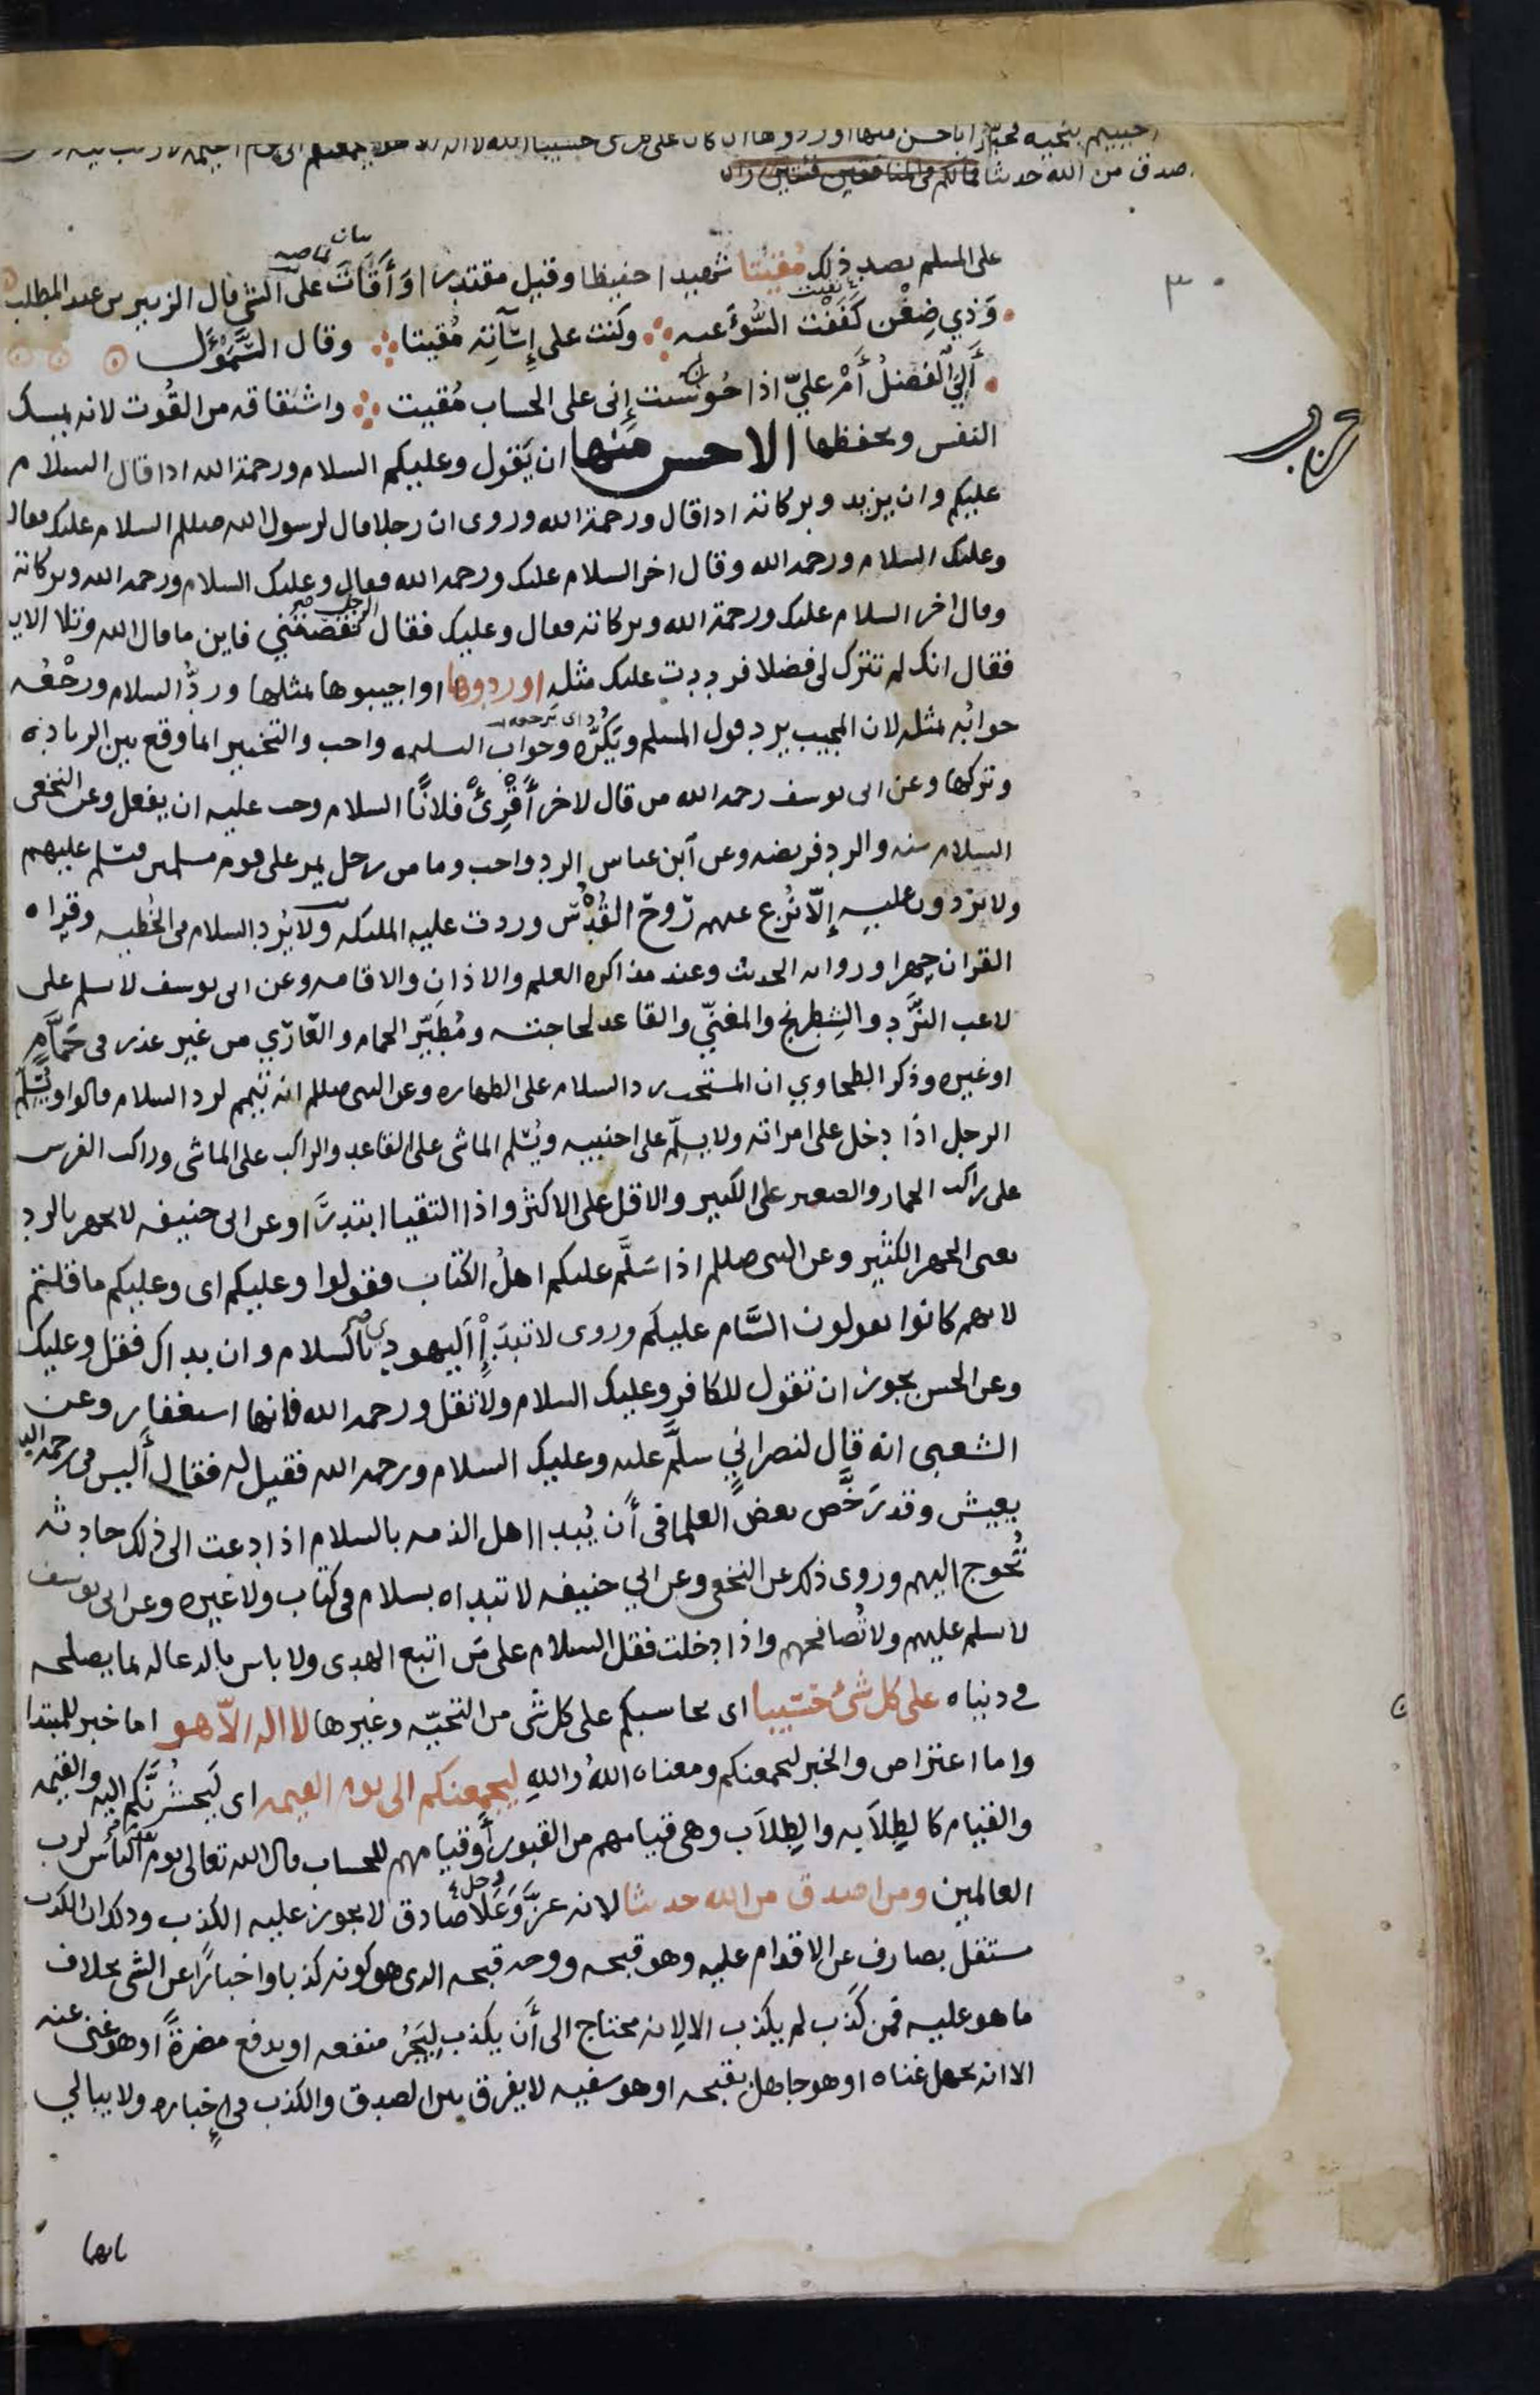 صدق من الله حديثا فمالكم في المنافقين فئتين
على المسلم بصد ذلك مُقيتا شهيدا حفيظا وقيل مقتدرا وَأَقَاتَ على الشى قال الزبير بن عبد المطلب
وَذي ضِغْن كَفَفْت السُّوٓءَ عنه وكنت على إِسَآءَتِه مُقيتا وقال السَّمَوْءَل
أَلِيَ ٱلْفضلُ أَمْ عليّ اذا حُوسبت إِنى على الحساب مُقيت واشتقاقه من القُوت لانه يمسك
النفس ويحفظها الاحسن منها ان يَقول وعليكم السلام ورحمة الله اذا قال السلام
عليكم وان يزيد وبركاته اذا قال ورحمة الله وروى ان رجلا قال لرسول الله صللم السلام عليك فقال
وعليك السلام ورحمه الله وقال اخر السلام عليك ورحمه الله فقال وعليك السلام ورحمه الله وبركاته
وقال اخر السلام عليك ورحمة الله وبركاته فقال وعليك فقال الرجل نقصتَني فاين ما قال الله وتلا الايه
فقال انك لم تترك لى فضلا فرددت عليك مثله اوردوها او اجيبوها بمثلها وردُّ السلام ورَجْعُه
جوابُه بمثله لان المجيب يرد قول المسلم ويكرّه وجواب التسليمه واجب والتخيير انما وقع بين الزياده
وتركها وعن ابى يوسف رحمه الله من قال لاخر أَقْرِئْ فلانًا السلام وجب عليه ان يفعل وعن النخعى
السلام سنه والرد فريضه وعن ابن عباس الرد واجب وما من رجل يمر على قوم مسلمين فيسلم عليهم
ولا يردون عليه إِلّا نُزع عنهم رُوحُ القُدُس وردت عليه الملئكه ولا يُرد السلام فى الخُطبه وقراه
القران جهرا وروايه الحديث وعند مذاكره العلم والاذان والاقامه وعن ابى يوسف لا يسلم على
لاعب النَّرْد والشِطرنج والمغنّي والقاعد لحاجته ومُطَيّر الحمام والعَاري من غير عذر فى حَمَّامٍ
او غيره وذكر الطحاوي ان المستحب رد السلام على الطهاره وعن النبى صللم انه تيمم لرد السلام قالوا ويُسَلّم
الرجل اذا دخل على امراته ولا يسلّم على اجنبيه ويُسلم الماشى على القاعد والراكب على الماشى وراكب الفرس
على راكب الحمار والصغير على الكبير والاقل على الاكثر واذا التقيا ابتدرَا وعن ابى حنيفه لا يجهر بالرد
يعنى الجهر الكثير وعن النبى صللم اذا سَلَّم عليكم اهلُ الكتاب فقولوا وعليكم اى وعليكم ما قلتم
لانهم كانوا يقولون السَّام عليكم وروى لا تبتدَإِ اليهودي بالسلام وان بداك فقل وعليك
وعن الحسن يجوز ان تقول للكافر وعليك السلام ولا تقل ورحمه الله فانها استغفار وعن
الشعبى انه قال لنصرانيٍّ سلَّم عليه وعليك السلام ورحمه الله فقيل له فقال أَليس فى رحمه الله
يعيش وقد رَخَّص بعض العلما فى أَن يُبدا اهل الذمه بالسلام اذا دعت الى ذلك حادثه
تُحوج اليهم وروى ذلك عن النخعى وعن ابي حنيفه لا تبداه بسلام فى كتاب ولا غيره وعن ابى يوسف
لا تسلم عليهم ولا تُصافحهم واذا دخلت فقل السلام على مَن اتبع الهدى ولا باس بالدعا له بما يصلحه
فى دنياه على كل شىء حسيبا اى يحاسبكم على كل شى من التحيّه وغيرها لا اله الّا هو اما خبر للمبتدا
واما اعتراض والخبر ليجمعنكم ومعناه اللهُ واللهِ ليجمعنكم الى يوم القيمه اى لَيحشُرَنَّكم اليه والقيمه
والقيام كالطِلَابه والطِلَاب وهى قيامهم من القبور أو قيامهم للحساب قال الله تعالى يوم يقوم الناس لرب
العالمين ومن اصدق من الله حديثا لانه عزَّ وَعَلَا صادق لا يجوز عليه الكذب وذلك ان الكذب
مستقل بصارف عن الاقدام عليه وهو قبحه ووجه قبحه الذى هو كونه كذبا واخبارًا عن الشى بخلاف
ما هو عليه فمن كَذب لم يكذب الا لانه محتاج الى أَن يكذب لِيَجُرّ منفعه او يدفع مضرةً او هو غنى عنه
الا انه يجهل غناه او هو جاهل بقبحه او هو سفيه لا يفرق بين الصدق والكذب فى إِخباره ولا يبالي
بايهما